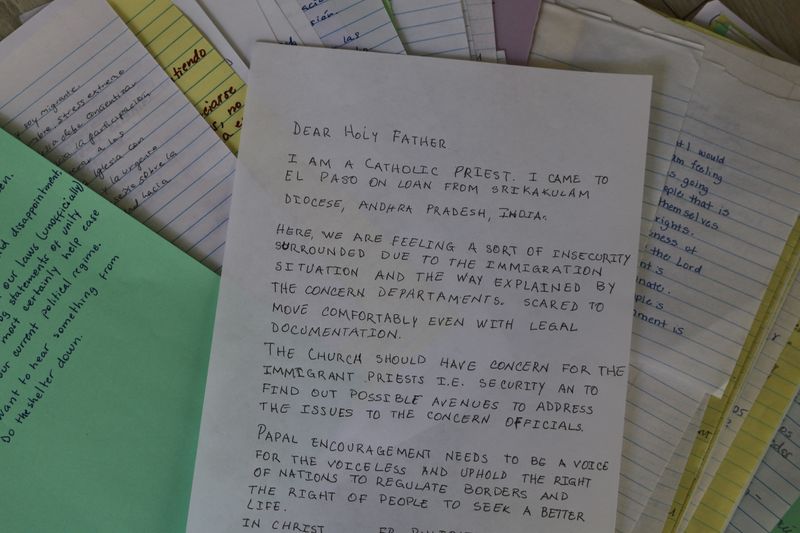 DEAR HOLY FATHER
I AM A CATHOLIC PRIEST. I CAME TO
EL PASO ON LOAN FROM SRIKAKULAM
DIOCESE, ANDHRA PRADESH, INDIA.
HERE, WE ARE FEELING A SORT OF INSECURITY
SURROUNDED DUE TO THE IMMIGRATION
SITUATION AND THE WAY EXPLAINED BY
THE CONCERN DEPARTAMENTS. SCARED TO
MOVE COMFORTABLY EVEN WITH LEGAL
DOCUMENTATION.
THE CHURCH SHOULD HAVE CONCERN FOR THE
IMMIGRANT PRIESTS I.E. SECURITY AN TO
FIND OUT POSSIBLE AVENUES TO ADDRESS
THE ISSUES TO THE CONCERN OFFICIALS.
PAPAL ENCOURAGEMENT NEEDS TO BE A VOICE
FOR THE VOICELESS AND UPHOLD THE RIGHT
OF NATIONS TO REGULATE BORDERS AND
THE RIGHT OF PEOPLE TO SEEK A BETTER
LIFE.
IN CHRIST
disappointment.
our laws (unofficially)
statements of unity
most certainly help ease
our current political regime.
want to hear something from
Do the shelter down.
soy migrante.
stress extremo
debe concientizar
la participación
Iglesia con
lo urgente
sobre la
tiendo
no
las
I would
am feeling
going
that is
themselves
rights.
of
the Lord
is